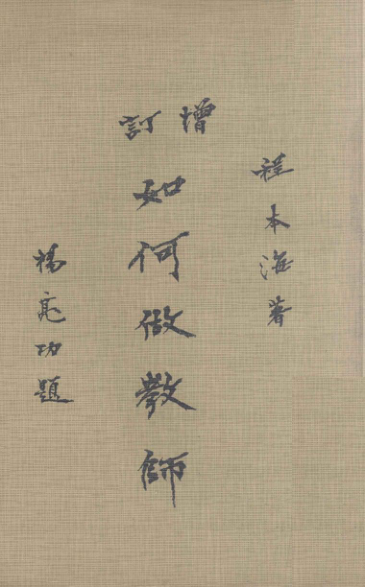 程本海著
增訂
如何做教師
楊亮功題